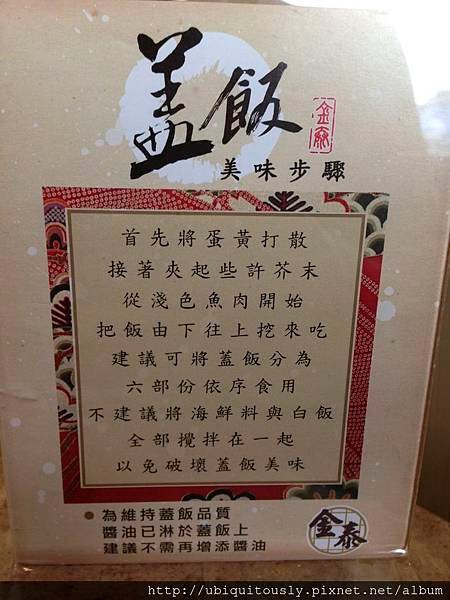 蓋飯
金泰
美味步驟
首先將蛋黃打散
接著夾起些許芥末
從淺色魚肉開始
把飯由下往上挖來吃
建議可將蓋飯分為
六部份依序食用
不建議將海鮮料與白飯
全部攪拌在一起
以免破壞蓋飯美味
● 為維持蓋飯品質
醬油已淋於蓋飯上
建議不需再增添醬油
金泰
http://ubiquitously.pixnet.net/album